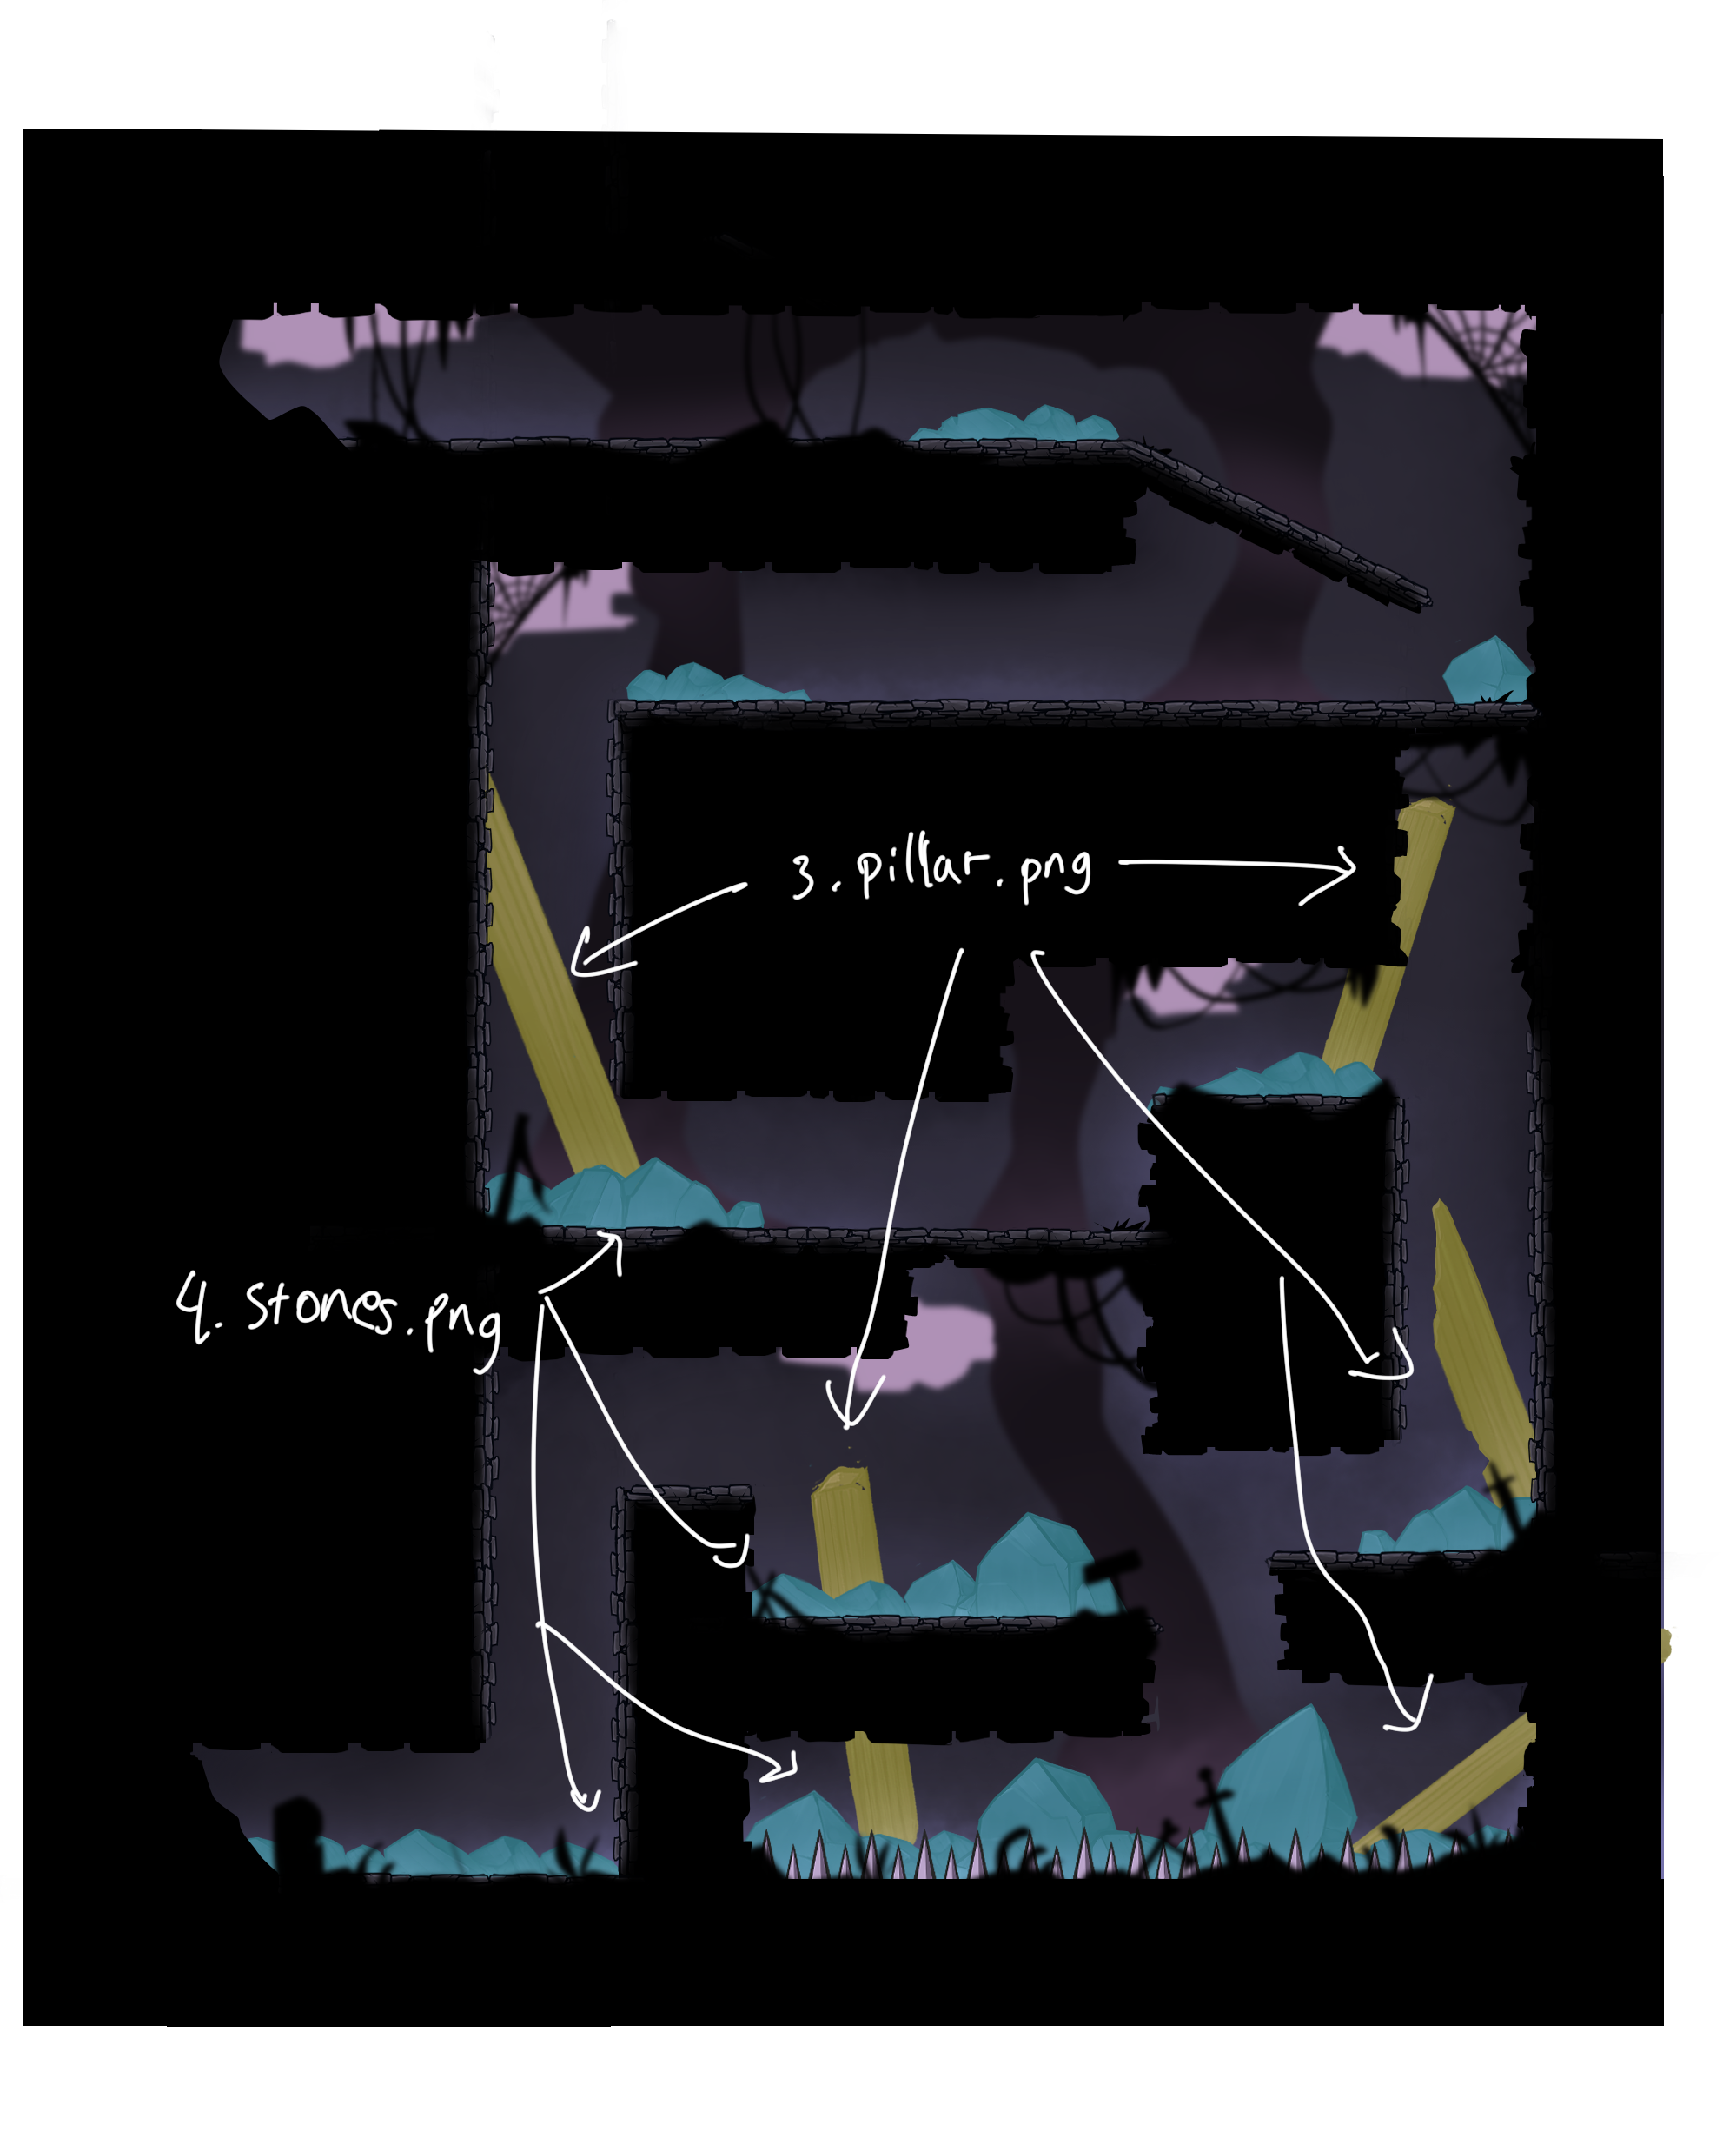 3. pillar.png
4. stones.png